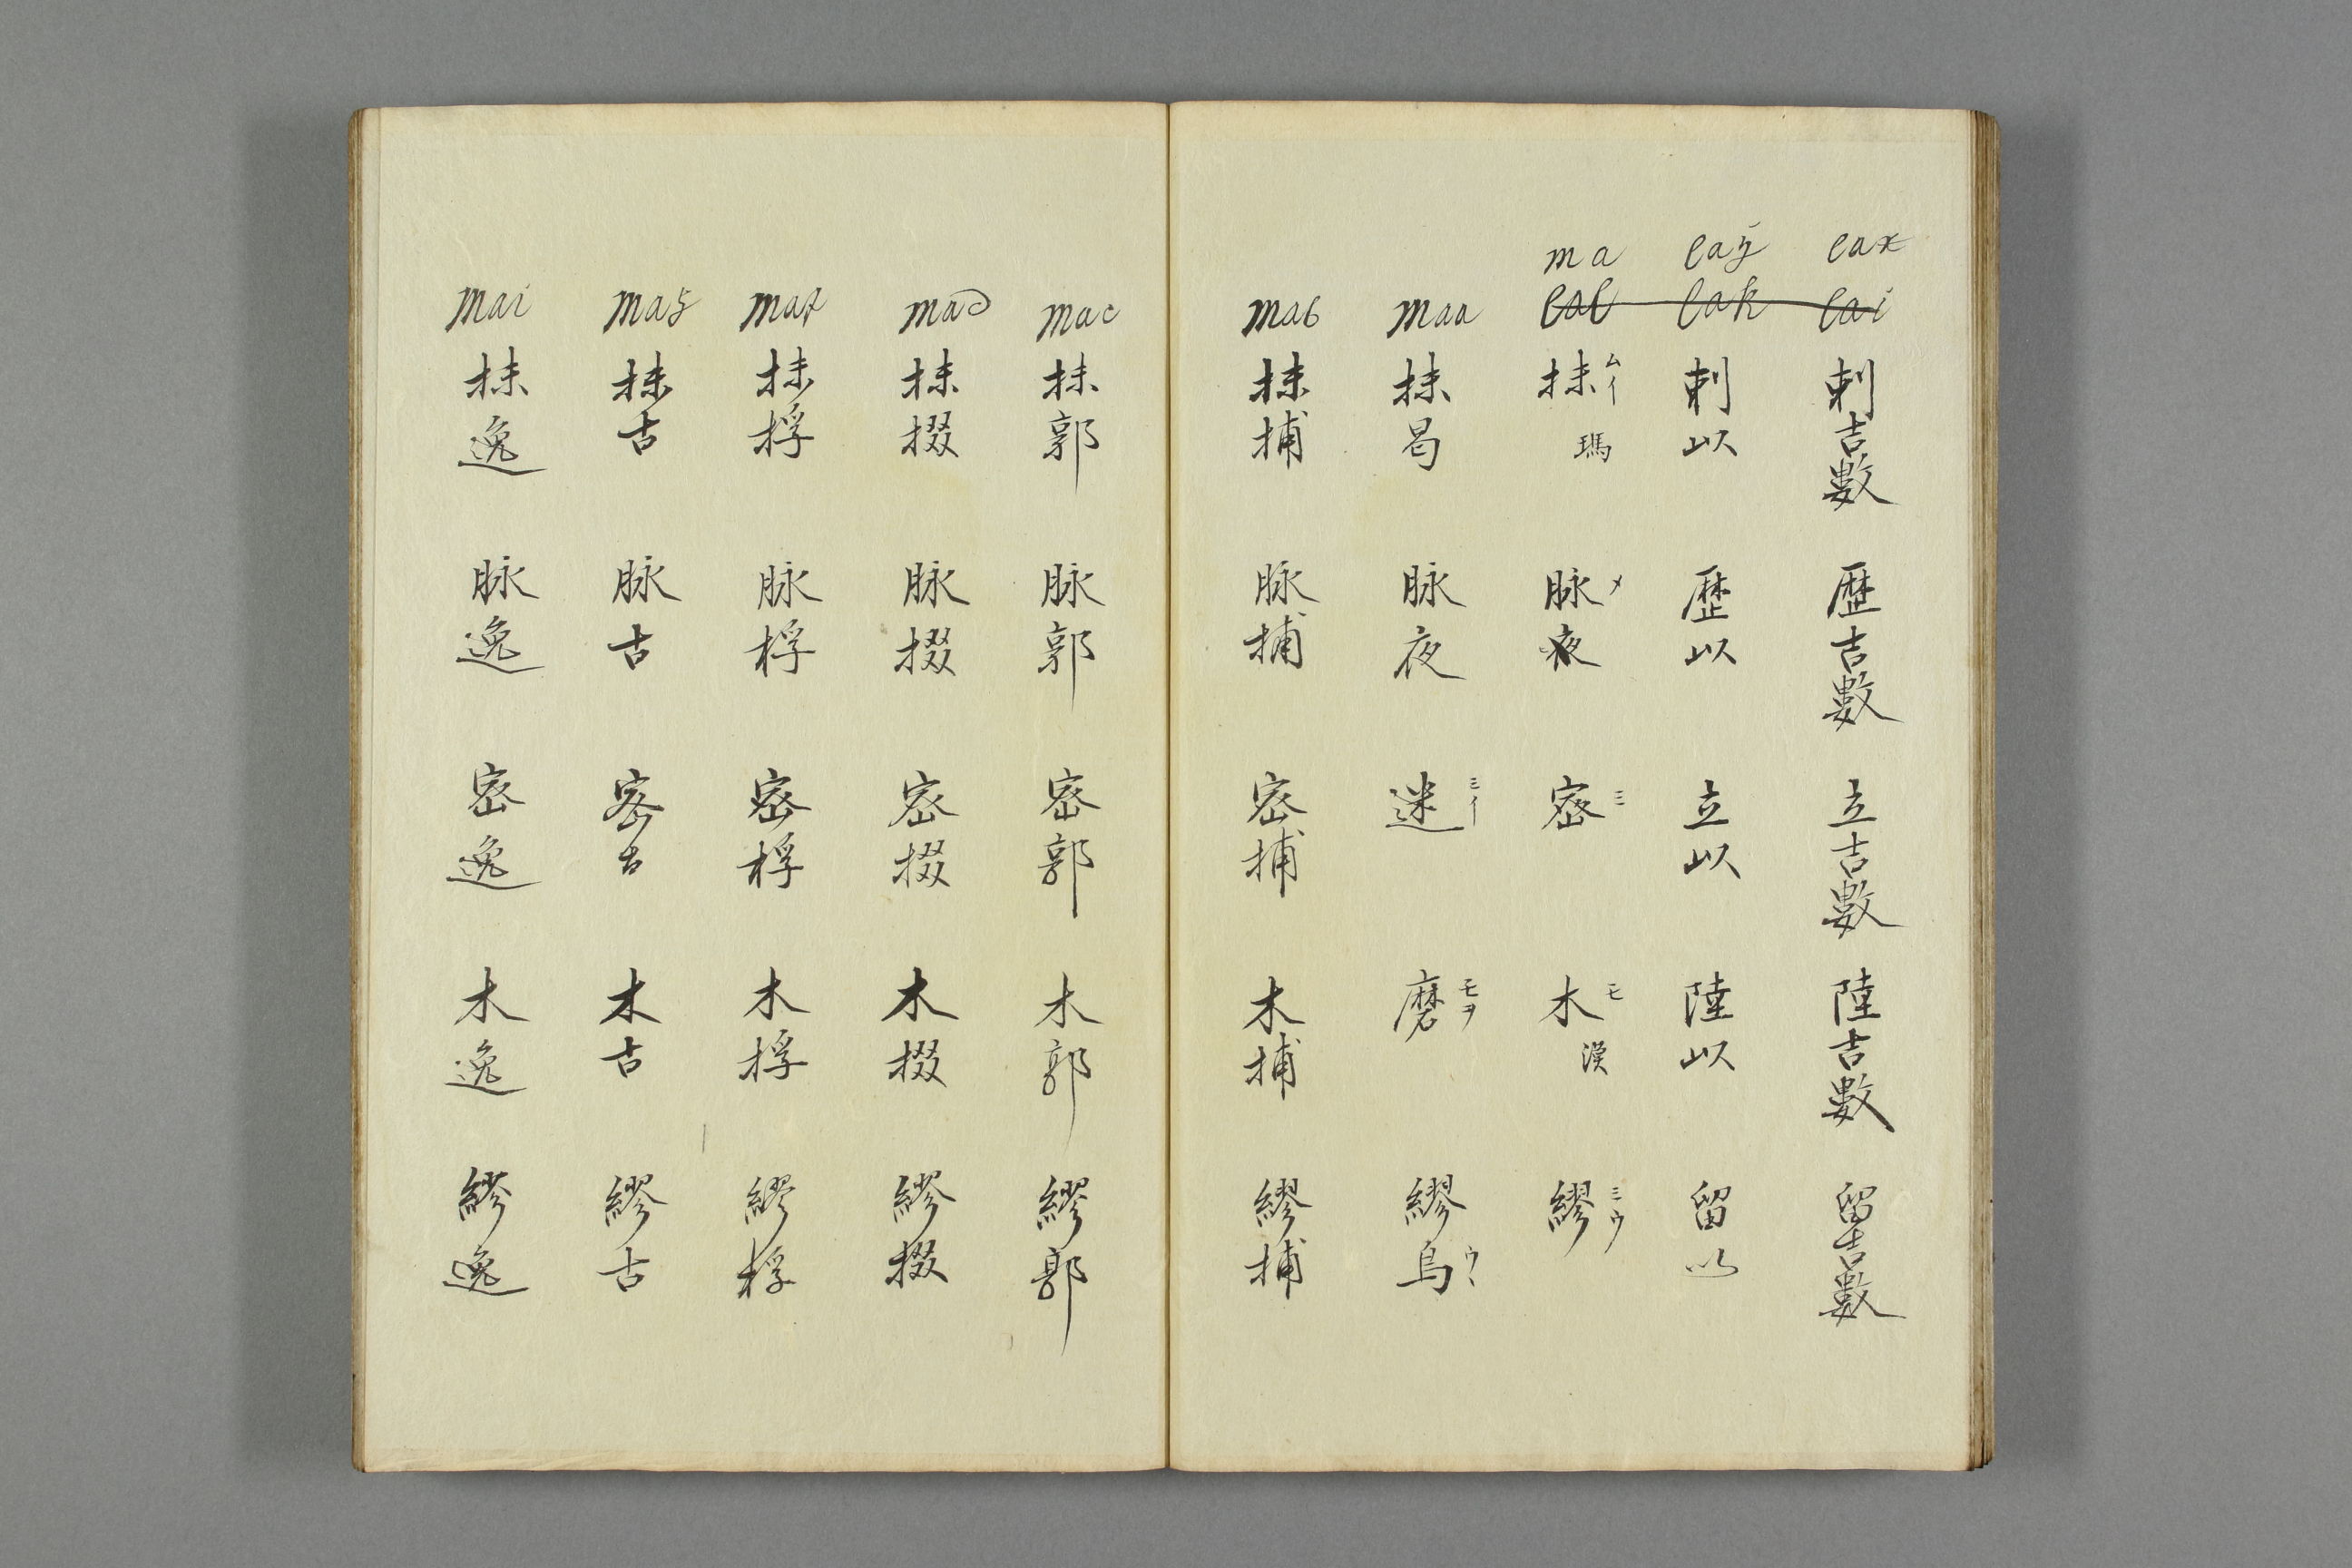 lax
lai
剌吉數 歴吉數 立吉數 陸吉數 留吉數
laÿ
lak
剌以 歴以 立以 陸以 留以
ma
lal
抹ムイ 瑪 脉メ夜 宻ミ 木モ 漠 繆ミウ
maa
抹曷 脉夜 迷ミイ 磨モヲ 繆烏ウ丶
mab
抹捕 脉捕 宻捕 木捕 繆捕
mac
抹郭 脉郭 宻郭 木郭 繆郭
mad
抹掇 脉掇 宻掇 木掇 繆掇
maf
抹桴 脉桴 宻桴 木桴 繆桴
mag
抹古 脉古 宻古 木古 繆古
mai
抹逸 脉逸 宻逸 木逸 繆逸